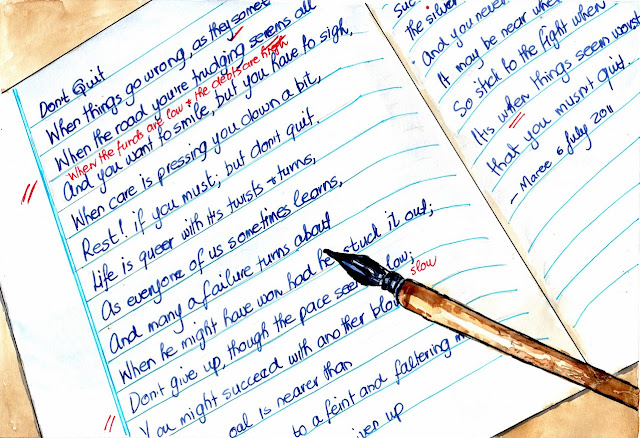 Don't Quit
When things go wrong, as they somet
When the road you're trudging seems all
When the funds are low & the debts are high
And you want to smile, but you have to sigh,
When care is pressing you down a bit,
Rest! if you must; but don't quit.
Life is queer with its twists & turns,
As everyone of us sometimes learns,
And many a failure turns about
When he might have won had he stuck it out;
Don't give up, though the pace seem low; slow
You might succeed with another blow
oal is nearer than
to a feint and faltering
iven up
Suc
the silver
And you never
It may be near when
So stick to the fight when
Its when things seem worst
that you musn't quit.
- Maree 6 July 2011